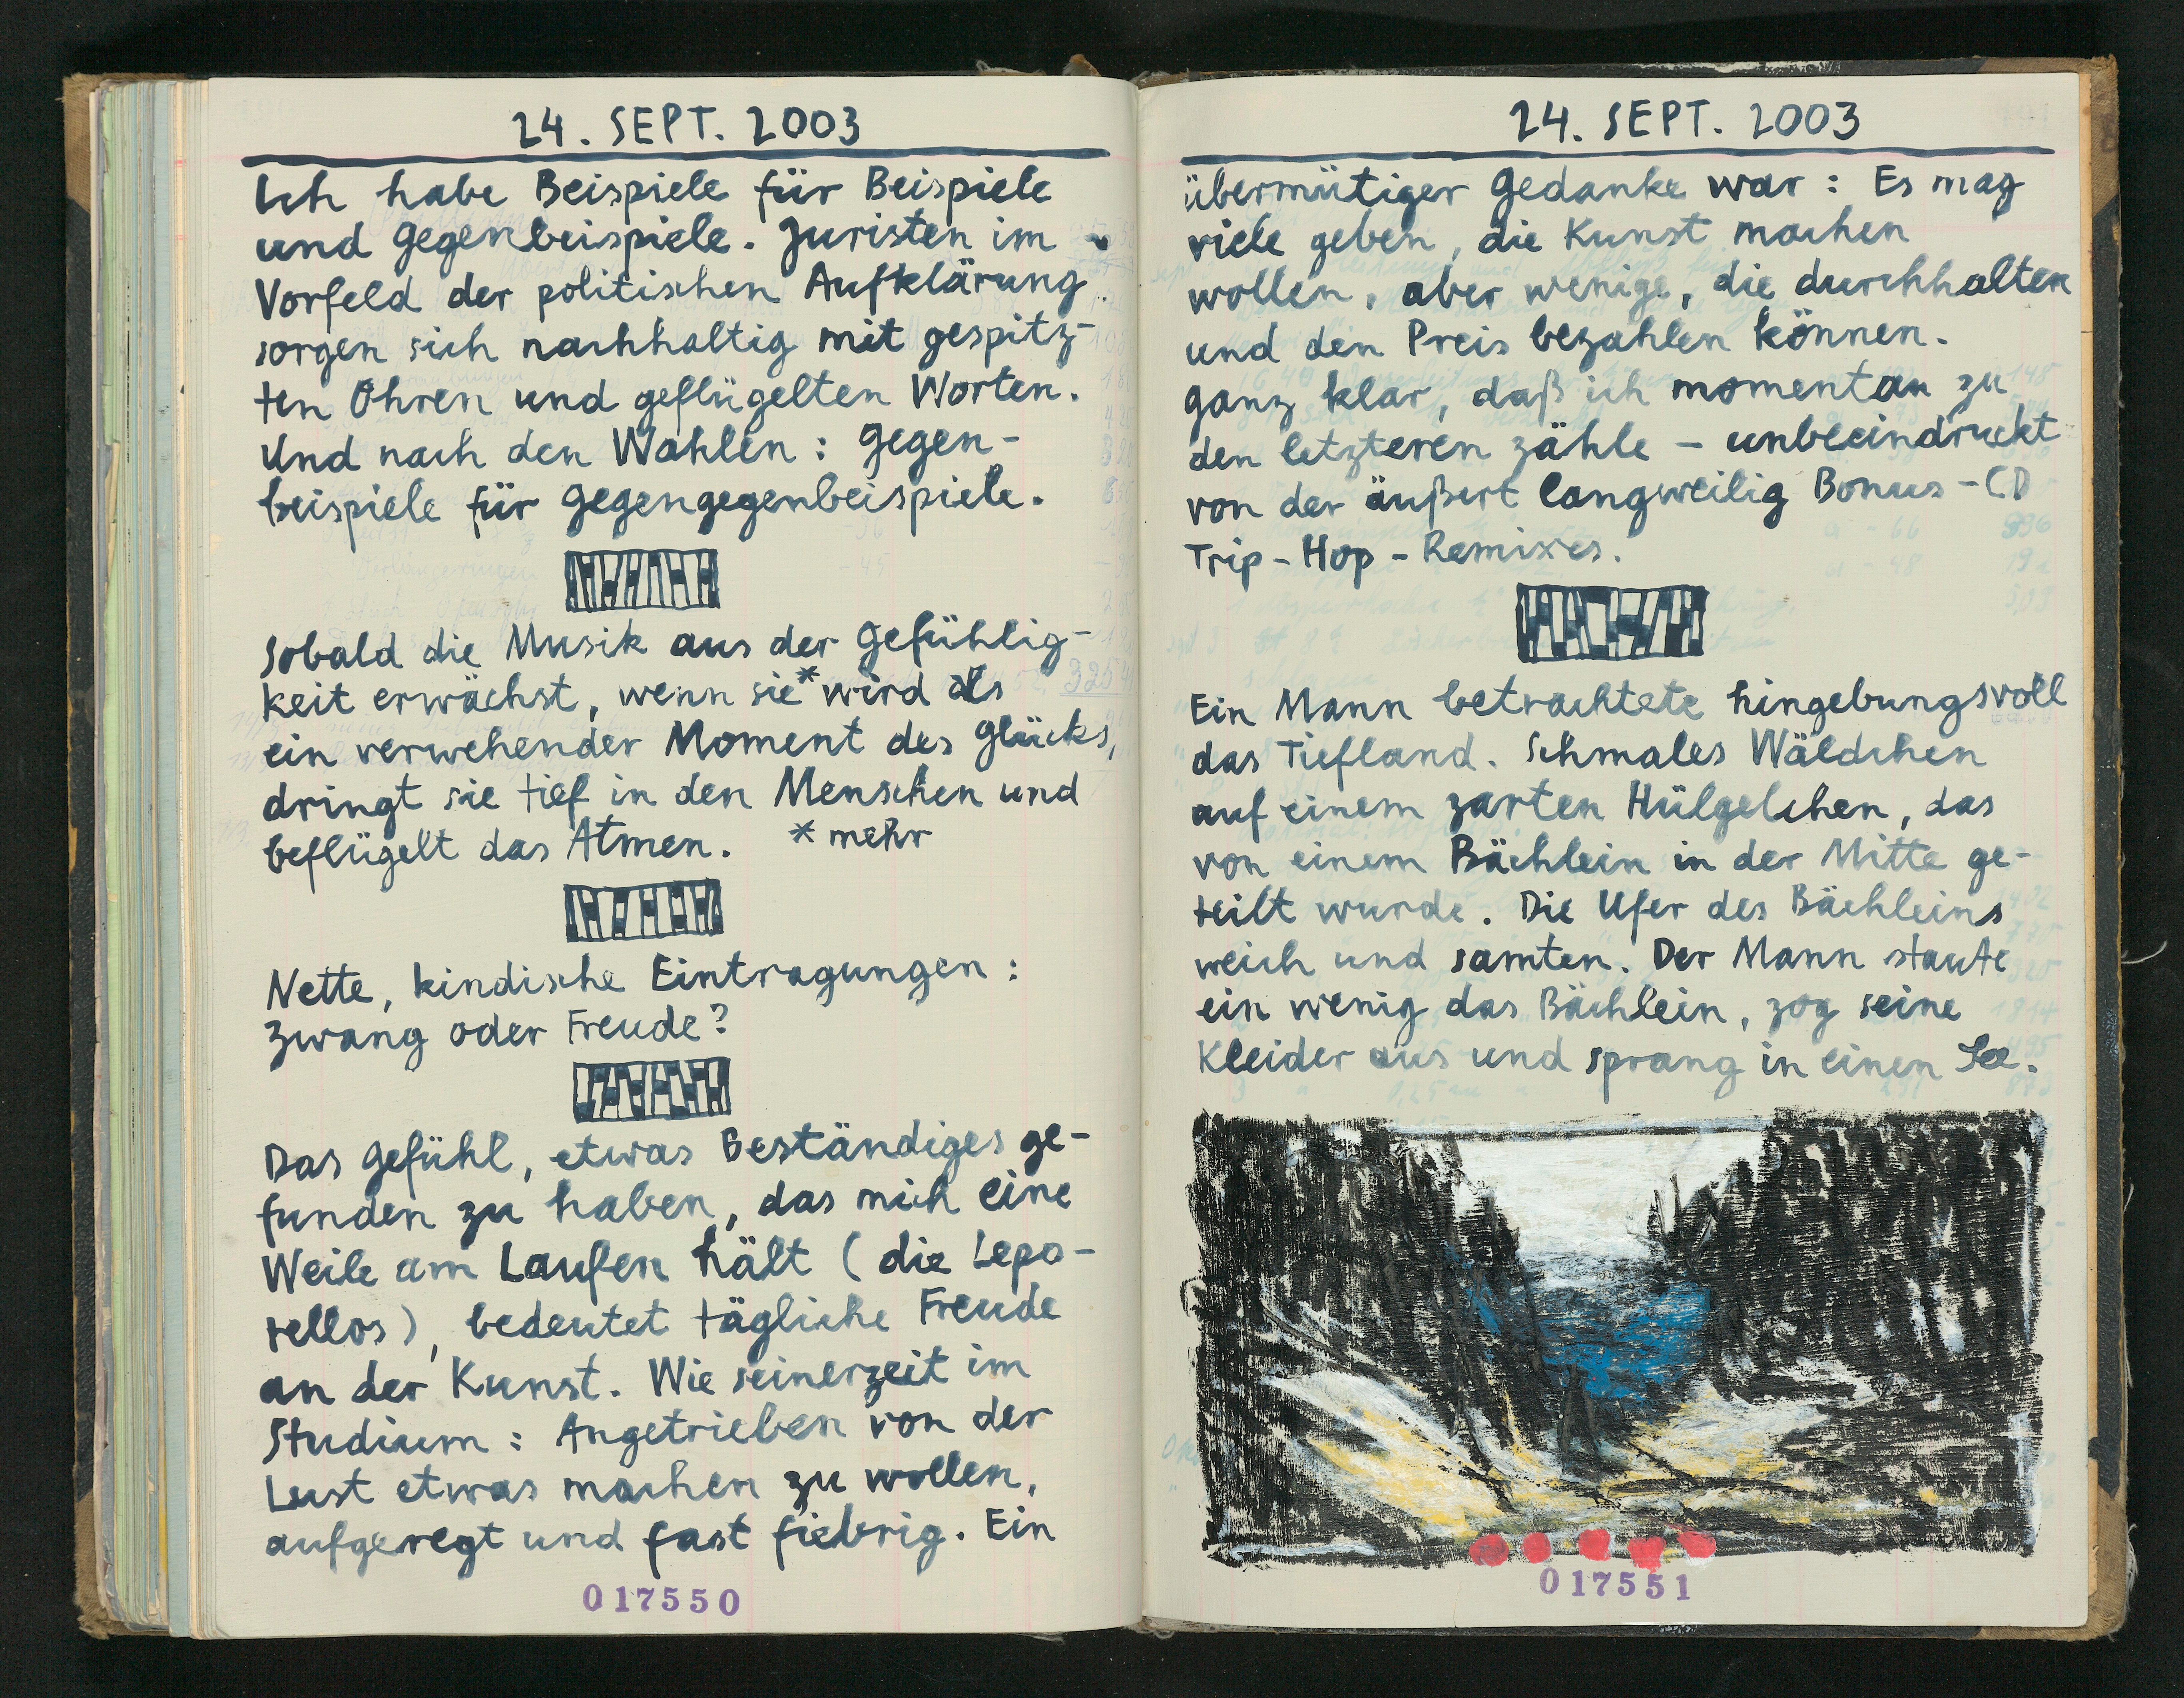 24. SEPT. 2003
Ich habe Beispiele für Beispiele
und Gegenbeispiele. Juristen im
Vorfeld der politischen Aufklärung
sorgen sich nachhaltig mit gespitz-
ten Ohren und geflügelten Worten.
Und nach den Wahlen: Gegen-
beispiele für Gegengegenbeispiele.
Sobald die Musik aus der Gefühlig-
keit erwächst, wenn sie* wird als
ein verwehender Moment des Glücks,
dringt sie tief in den Menschen und
beflügelt das Atmen. * mehr
Nette, kindische Eintragungen:
Zwang oder Freude?
Das Gefühl, etwas Beständiges ge-
funden zu haben, das mich eine
Weile am Laufen hält (die Lepo-
rellos), bedeutet tägliche Freude
an der Kunst. Wie seinerzeit im
Studium: Angetrieben von der
Lust etwas machen zu wollen,
aufgeregt und fast fiebrig. Ein
017550
24. SEPT. 2003
übermütiger Gedanke war: Es mag
viele geben, die Kunst machen
wollen, aber wenige, die durchhalten
und den Preis bezahlen können.
Ganz klar, daß ich momentan zu
den letzteren zähle – unbeeindruckt
von der äußert langweilig Bonus-CD
Trip-Hop-Remixes.
Ein Mann betrachtete hingebungsvoll
das Tiefland. Schmales Wäldchen
auf einem zarten Hülgelchen, das
von einem Bächlein in der Mitte ge-
teilt wurde. Die Ufer des Bächleins
weich und samten. Der Mann staute
ein wenig das Bächlein, zog seine
Kleider aus und sprang in einen See.
017551